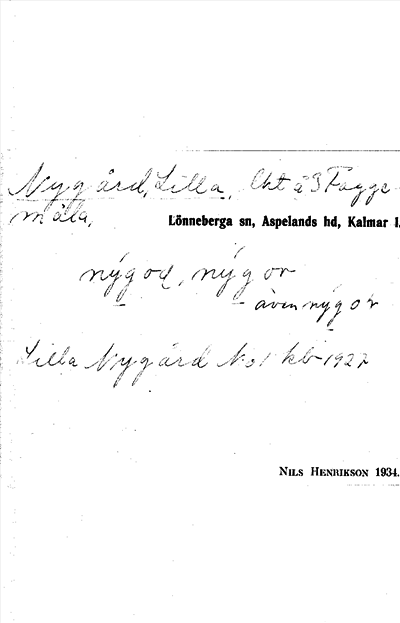 Nygård, Lilla, Lht å 3 Fagge-
måla,
Lönneberga sn, Aspelands hd, Kalmar l.
nýgod, nýgor
även nýgor
Lilla Nygård No 1 kb 1927
NILS HENRIKSON 1934.